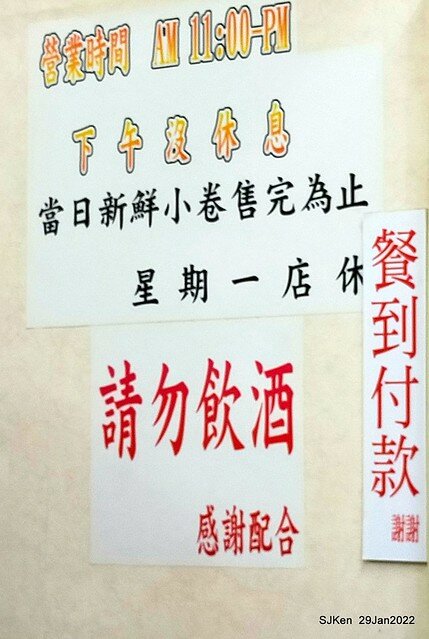 營業時間 AM 11:00-PM
下午沒休息
當日新鮮小卷售完為止
星期一店休
請勿飲酒
感謝配合
餐到付款
謝謝
SJKen 29Jan2022